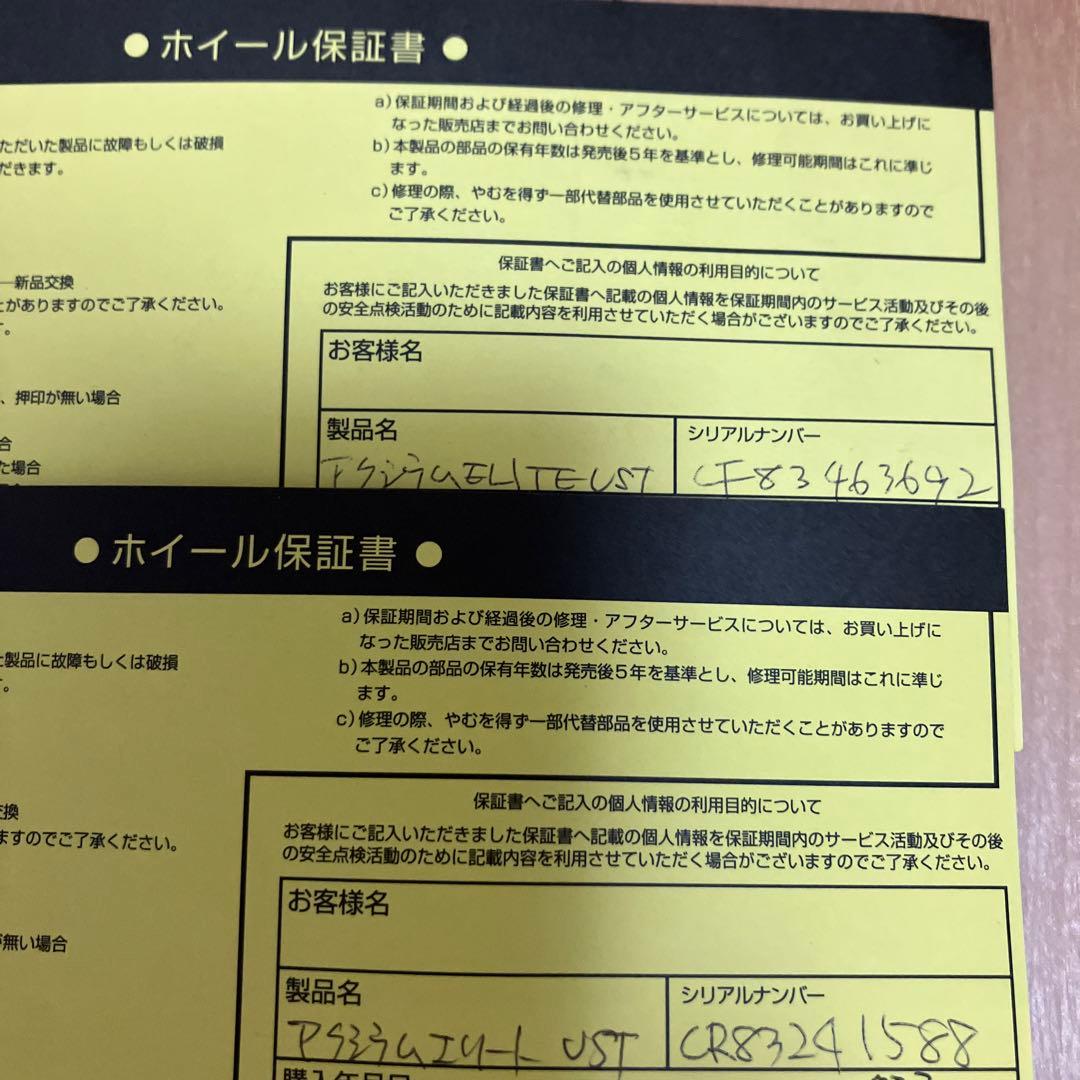 ●ホイール保証書●
a)保証期間および経過後の修理・アフターサービスについては、お買い上げに
なった販売店までお問い合わせください。
b)本製品の部品の保有年数は発売後5年を基準とし、修理可能期間はこれに準じ
ます。
c)修理の際、やむを得ず一部代替部品を使用させていただくことがありますので
ご了承ください。
ただいた製品に故障もしくは破損
だきます。
―新品交換
とがありますのでご了承ください。
す。
、押印が無い場合
合
た場合
保証書へご記入の個人情報の利用目的について
お客様にご記入いただきました保証書へ記載の個人情報を保証期間内のサービス活動及びその後
の安全点検活動のために記載内容を利用させていただく場合がございますのでご了承ください。
お客様名
製品名
シリアルナンバー
アクシウムELITE UST
CF83463692
●ホイール保証書●
a)保証期間および経過後の修理・アフターサービスについては、お買い上げに
なった販売店までお問い合わせください。
b)本製品の部品の保有年数は発売後5年を基準とし、修理可能期間はこれに準じ
ます。
c)修理の際、やむを得ず一部代替部品を使用させていただくことがありますので
ご了承ください。
た製品に故障もしくは破損
す。
交換
ますのでご了承ください。
が無い場合
保証書へご記入の個人情報の利用目的について
お客様にご記入いただきました保証書へ記載の個人情報を保証期間内のサービス活動及びその後
の安全点検活動のために記載内容を利用させていただく場合がございますのでご了承ください。
お客様名
製品名
シリアルナンバー
アクシウムエリート UST
CR83241588